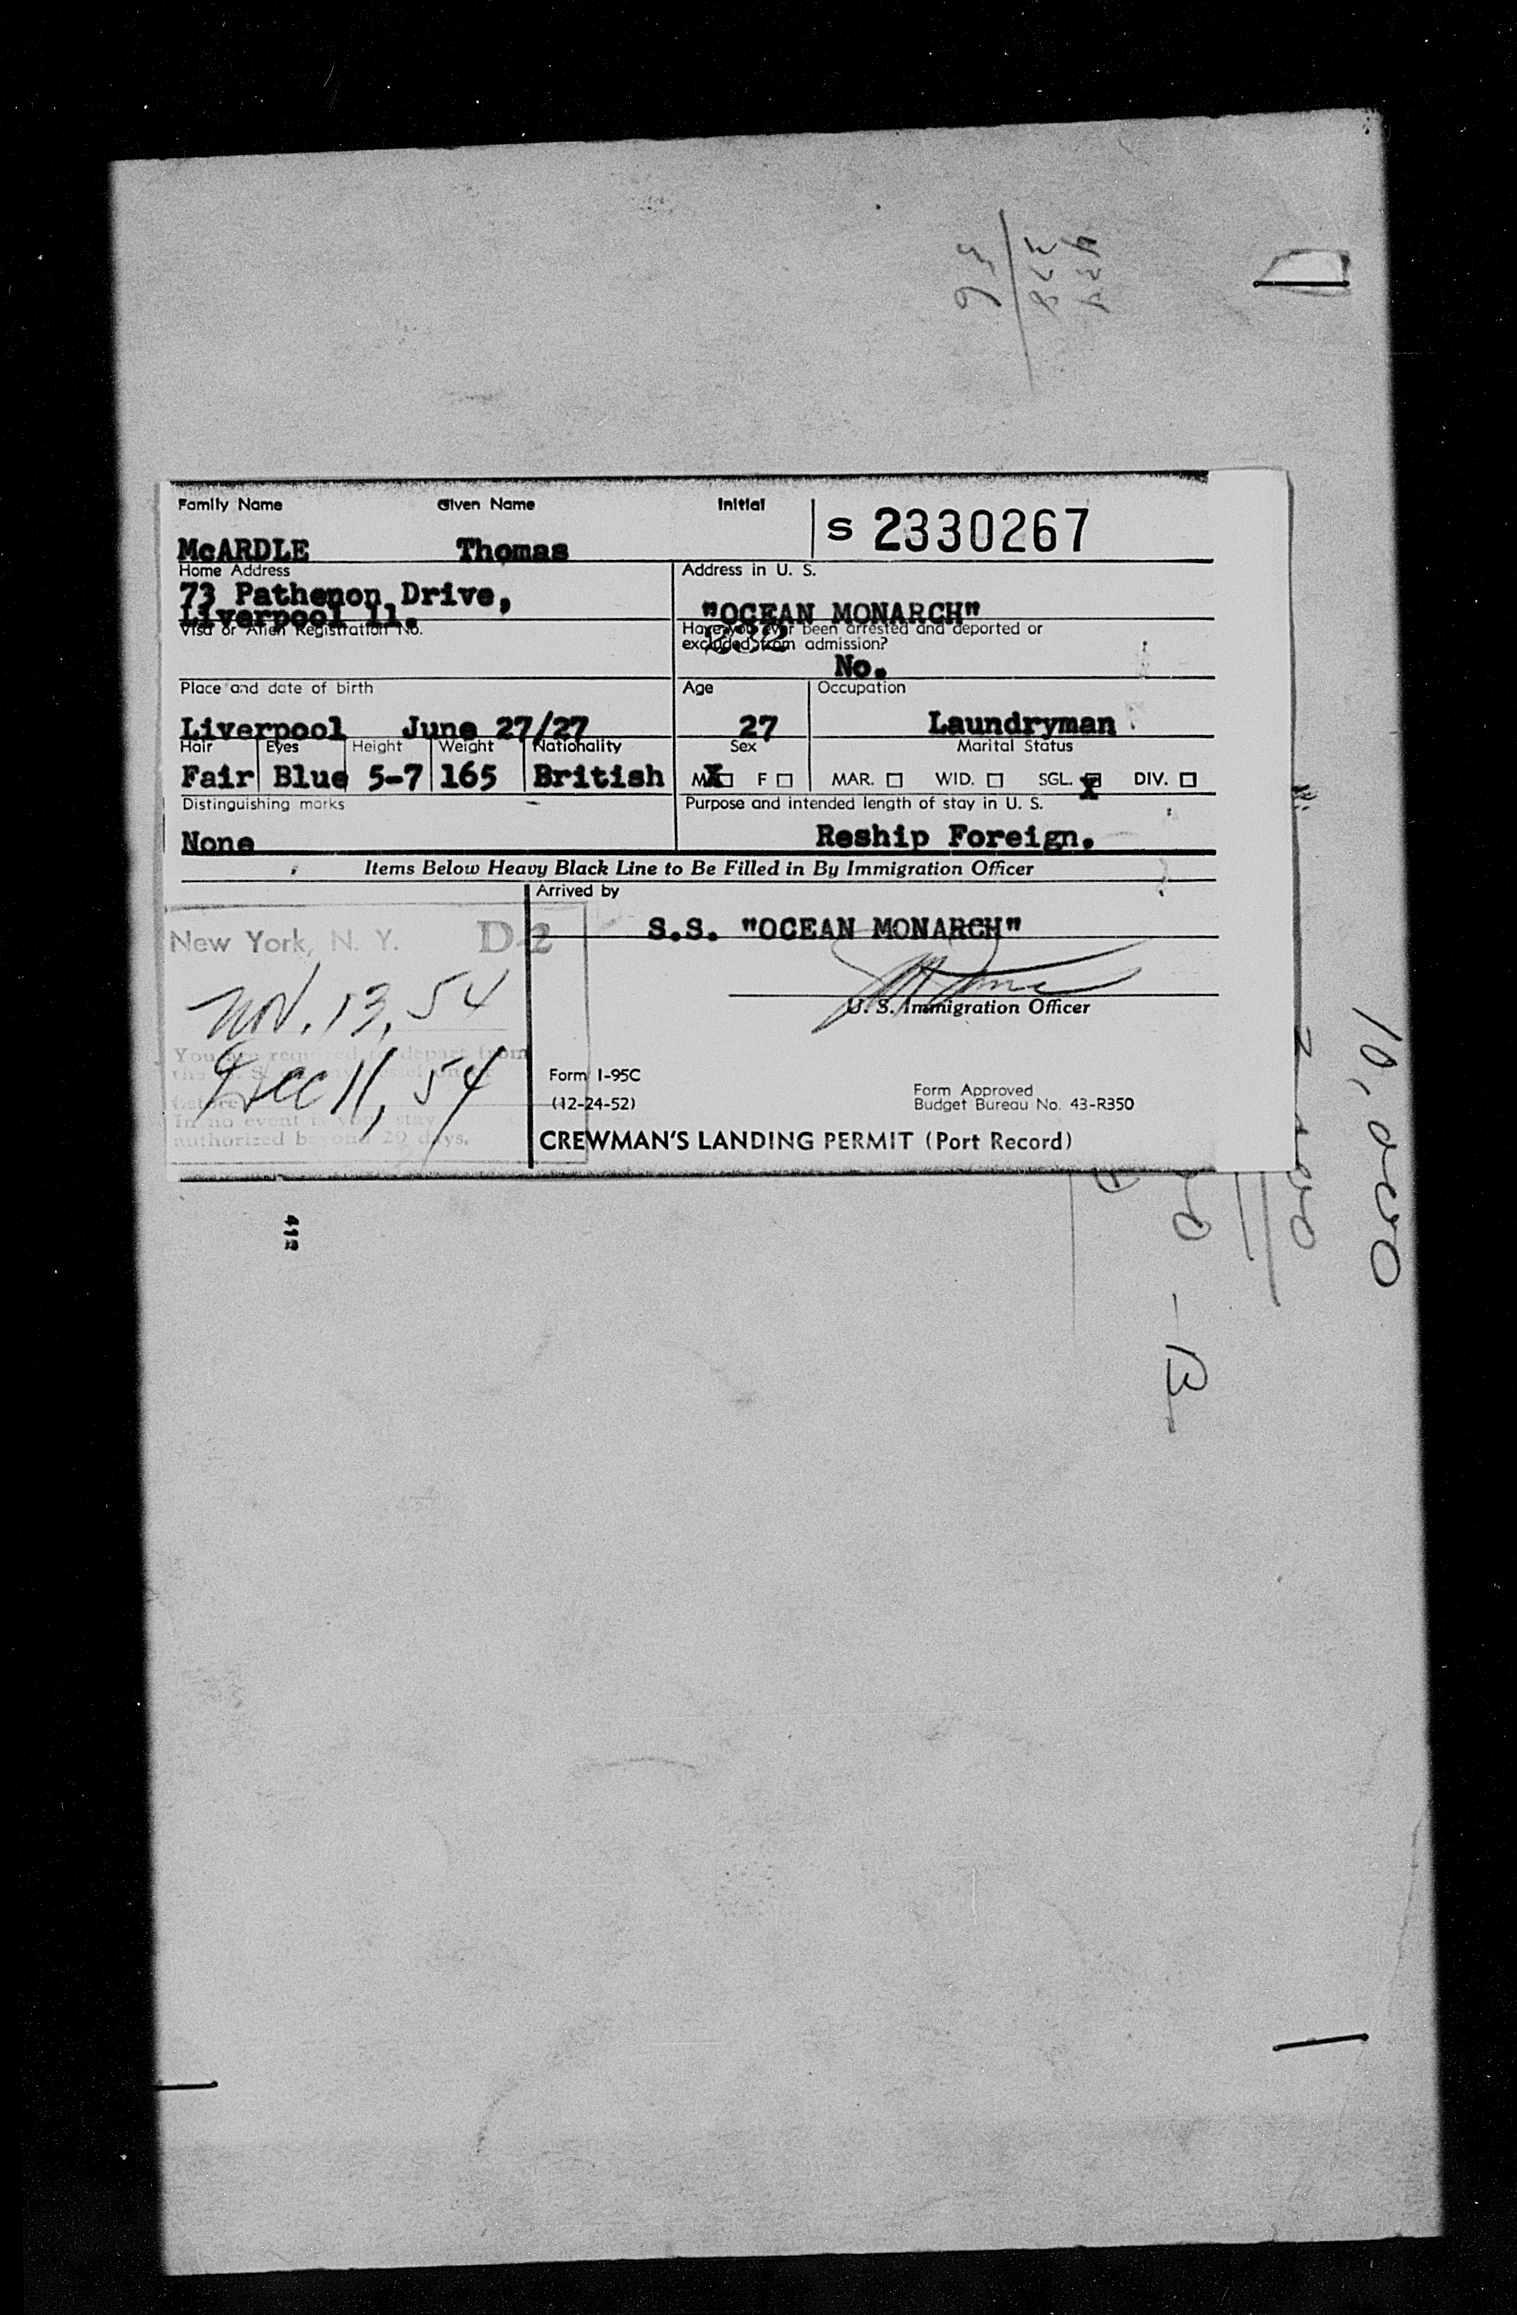 Family Name Given Name Initial
S 2330267
McARDLE Thomas
Home Address Address in U. S.
73 Pathenon Drive,
Liverpool 11. "OCEAN MONARCH"
Visa or Alien Registration No. Have you ever been arrested and deported or
excluded from admission?
No.
Place and date of birth Age Occupation
Liverpool June 27/27 27 Laundryman
Hair Eyes Height Weight Nationality Sex Marital Status
Fair Blue 5-7 165 British M X F MAR. WID. SGL. X DIV.
Distinguishing marks Purpose and intended length of stay in U. S.
None Reship Foreign.
Items Below Heavy Black Line to Be Filled in By Immigration Officer
Arrived by
S.S. "OCEAN MONARCH"
New York, N. Y. D-2
Nov. 13, 54
U. S. Immigration Officer
You are required to depart from
Dec 11, 54
In no event is your stay
authorized beyond 29 days.
Form I-95C
(12-24-52)
Form Approved
Budget Bureau No. 43-R350
CREWMAN'S LANDING PERMIT (Port Record)
412
10,000